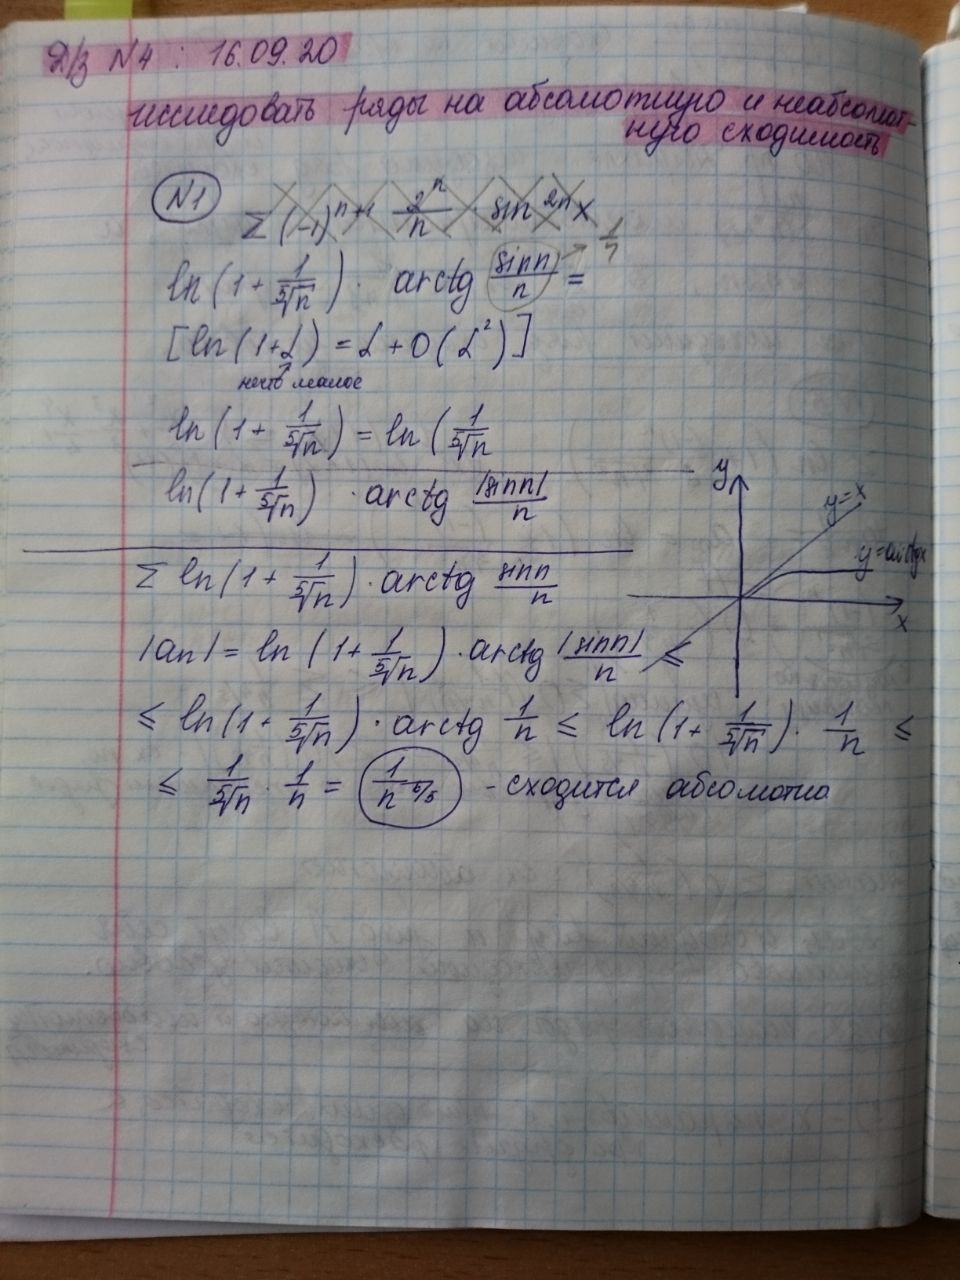 Д/з №4 : 16.09.20
исследовать ряды на абсолютную и неабсолют-
ную сходимость
№1 Σ (-1)^{n+1} 2^n/n · sin^{2n} x
ln(1 + 1/⁵√n) · arctg (sin n)/n = → 1/n
[ln(1+α) = α + O(α²)]
нечто малое
ln(1 + 1/⁵√n) = ln(1/⁵√n
ln(1 + 1/⁵√n) · arctg |sin n|/n
y
y=x
y=arctgx
x
Σ ln(1 + 1/⁵√n) · arctg (sin n)/n
|an| = ln(1 + 1/⁵√n) · arctg |sin n|/n ≤
≤ ln(1 + 1/⁵√n) · arctg 1/n ≤ ln(1 + 1/⁵√n) · 1/n ≤
≤ 1/⁵√n · 1/n = 1/n^{6/5} - сходится абсолютно